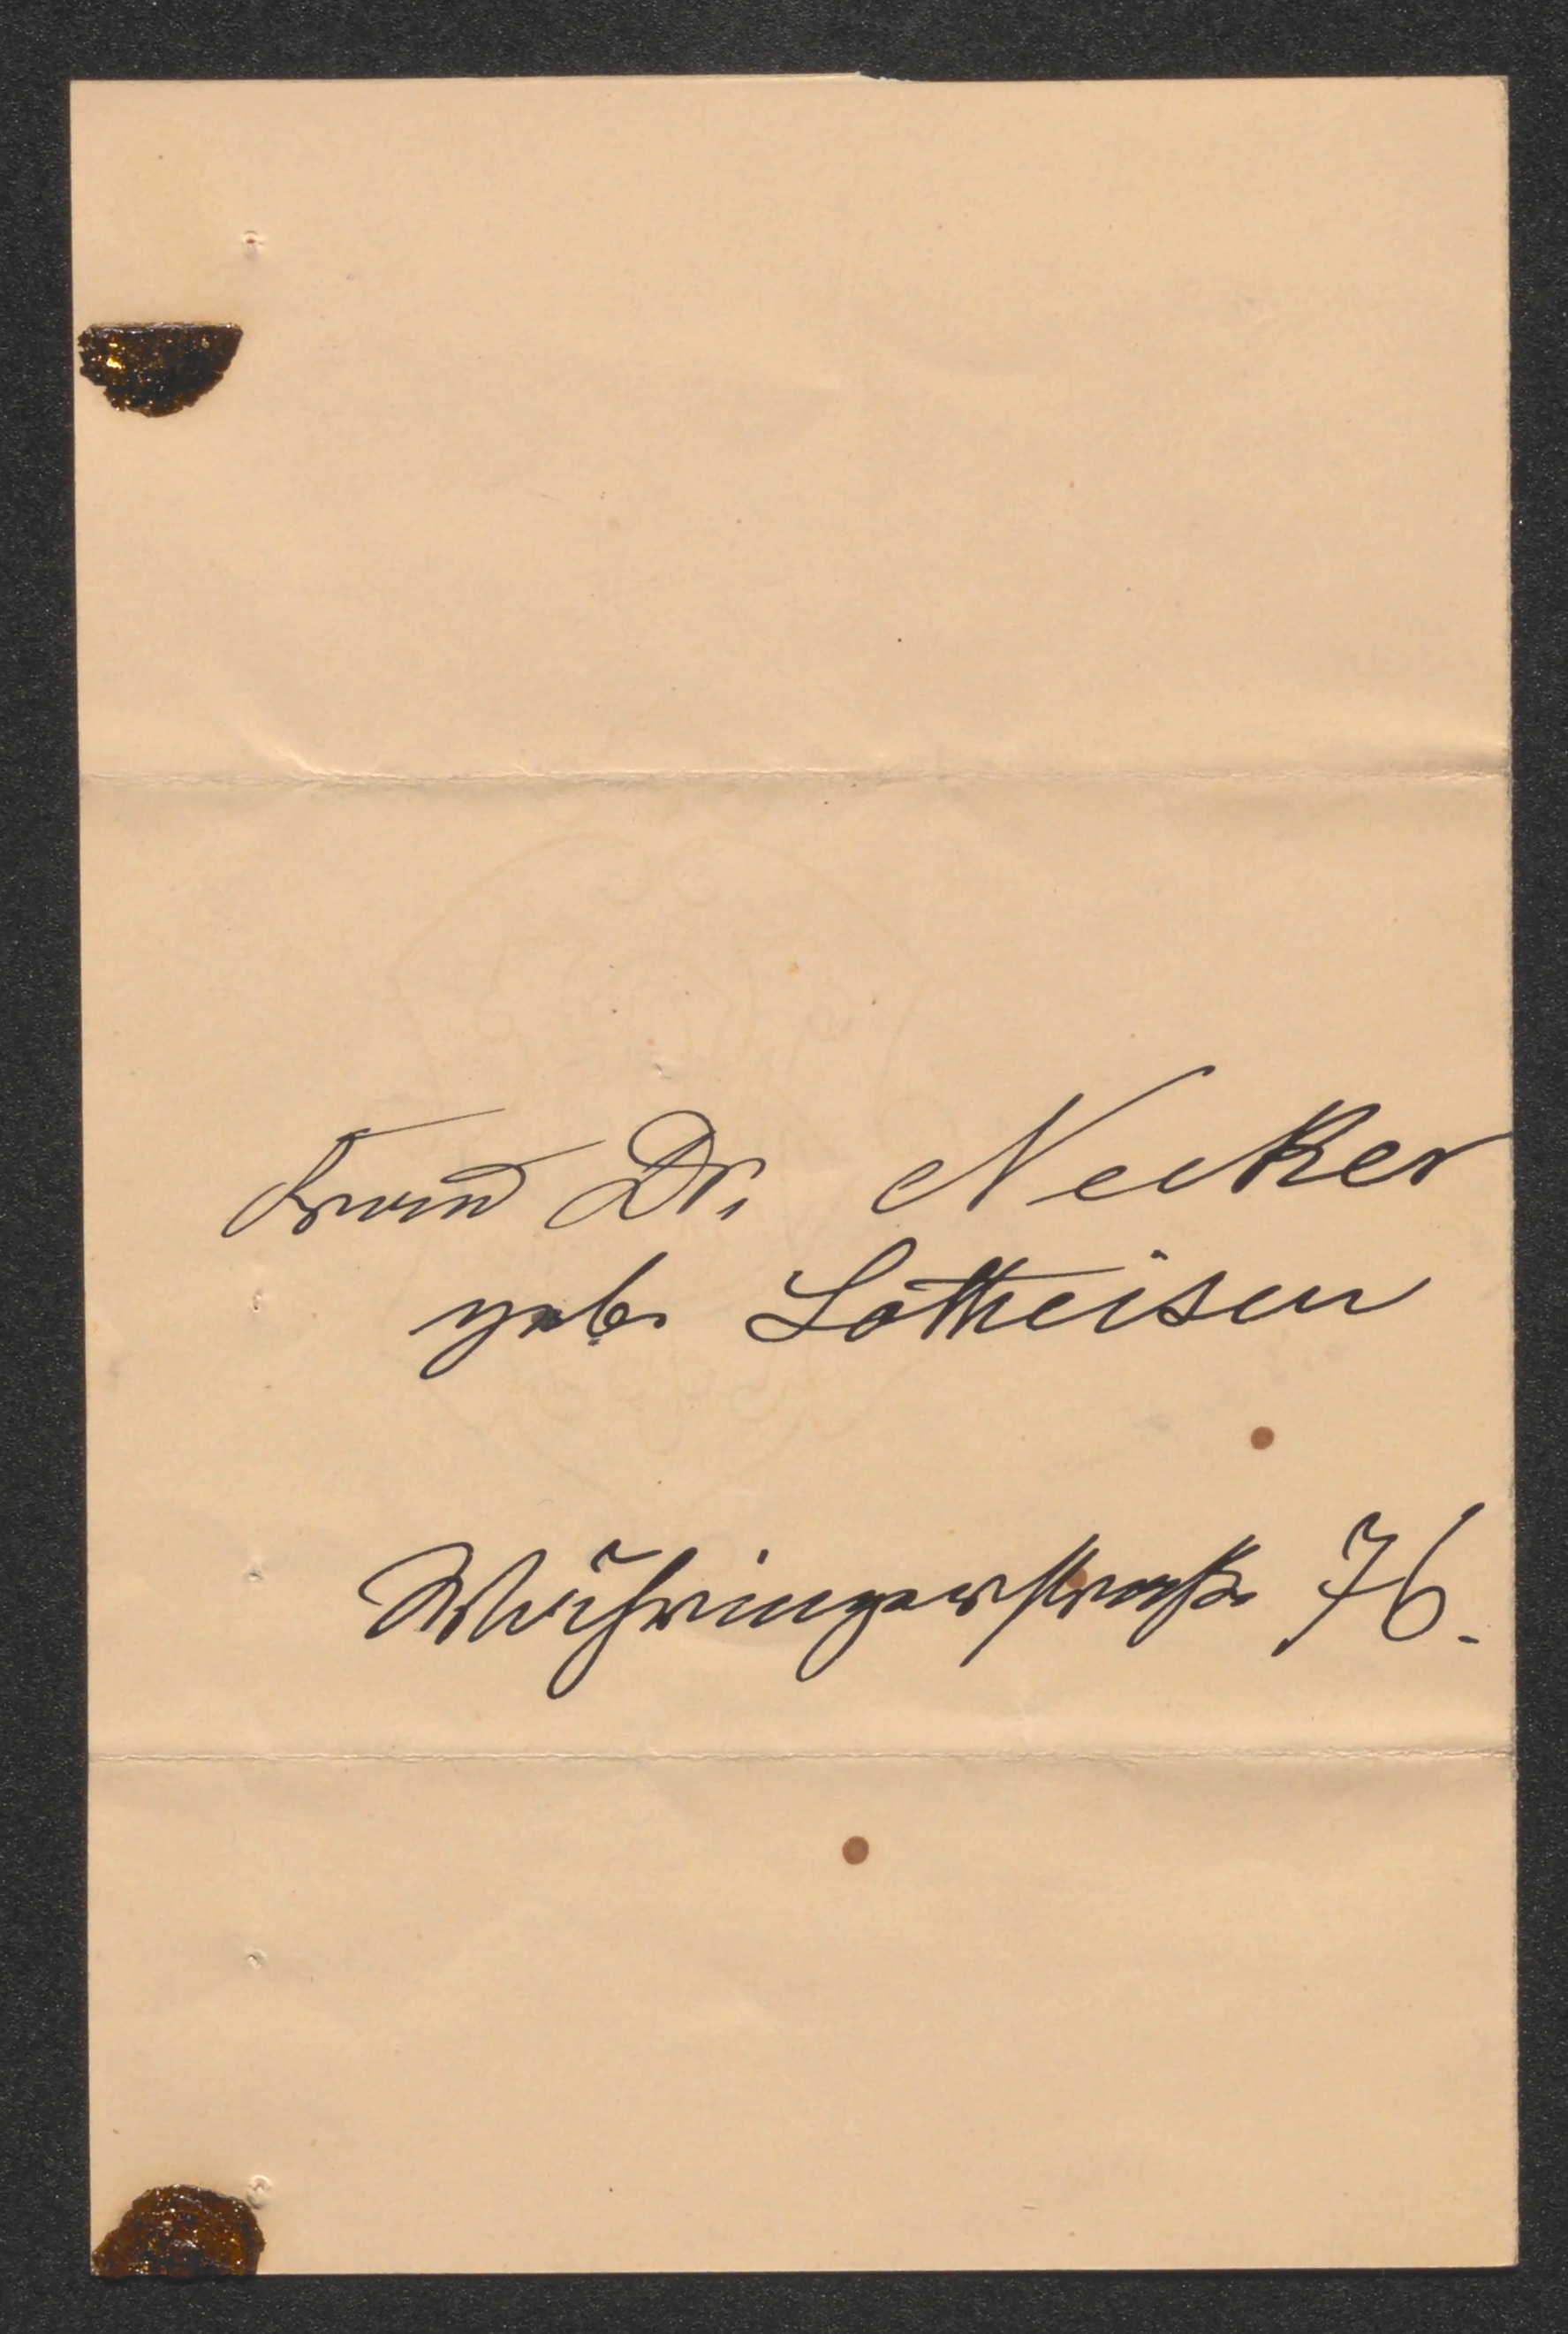 Frau Dr. Necker
geb. Lotheisen
Währingerstraße 76.